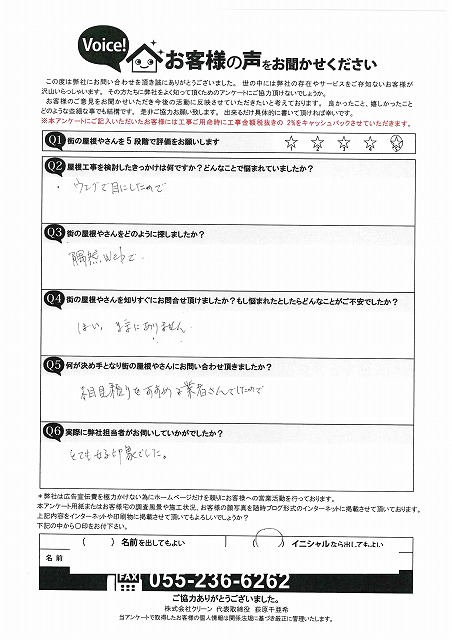 Voice! お客様の声をお聞かせください
この度は弊社にお問い合わせを頂き誠にありがとうございました。世の中には弊社の存在やサービスをご存知ないお客様が
沢山いらっしゃいます。その方たちに弊社をよく知って頂くためのアンケートにご協力頂けないでしょうか。
お客様のご意見をお聞かせいただき今後の活動に反映させていただきたいと考えております。良かったこと、嬉しかったこと
どのような些細な事でも結構です。是非ご協力お願い致します。出来るだけ具体的に書いて頂ければ幸いです。
※本アンケートにご記入いただいたお客様には工事ご用命時に工事金額税抜きの 2%をキャッシュバックさせていただきます。
Q1 街の屋根やさんを5段階で評価をお願いします
1 2 3 4 5
Q2 屋根工事を検討したきっかけは何ですか？どんなことで悩まれていましたか？
・ウェブで目にしたので
Q3 街の屋根やさんをどのように探しましたか？
偶然、Webで。
Q4 街の屋根やさんを知りすぐにお問合せ頂けましたか？もし悩まれたとしたらどんなことがご不安でしたか？
はい。 ありません
Q5 何が決め手となり街の屋根やさんにお問い合わせ頂きましたか？
相見積りをすすめる業者さんでしたので
Q6 実際に弊社担当者がお伺いしていかがでしたか？
とても好印象でした。
＊弊社は広告宣伝費を極力かけない為にホームページだけを頼りにお客様への営業活動を行っております。
本アンケート用紙またはお客様宅の調査風景や施工状況、お客様の顔写真を随時ブログ形式のインターネットに掲載させて頂いております。
上記内容をインターネットや印刷物に掲載させて頂いてもよろしいでしょうか？
下記の中から〇印をお付下さい。
（　）名前を出してもよい （　）イニシャルなら出してもよい
名前
FAX 055-236-6262
ご協力ありがとうございました。
株式会社クリーン 代表取締役 荻原千亜希
当アンケートで取得したお客様の個人情報は関係法規に基づき厳正に管理いたします。